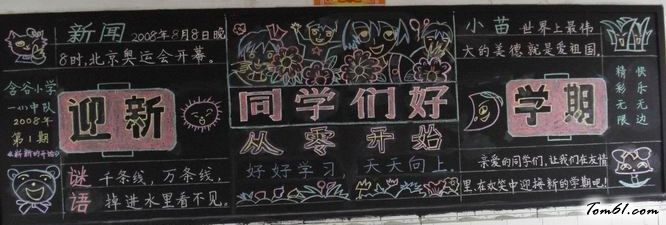 新闻 2008年8月8日晚
8时,北京奥运会开幕。
含谷小学
一(4)中队
2008年
第1期
迎新
谜语
千条线,万条线,
掉进水里看不见。
同学们好
从零开始
好好学习,天天向上。
小苗 世界上最伟
大的美德就是爱祖国
学期
精彩无限
快乐无边
亲爱的同学们,让我们在友情
里,在欢笑中迎接新的学期吧!
Tom61.com